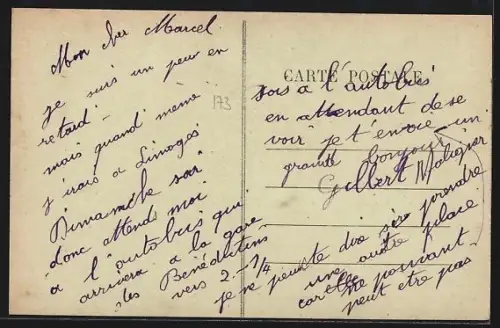 Mon cher Marcel
je suis un peu en
retard -
mais quand même
j'irais a Limoges
Dimanche soir
donc attends moi
a l'autobus qui
arrivera a la gare
les Bénédictins
vers 2 - 1/4
173
CARTE POSTALE
sois a l'autobus
en attendant de se
voir je t'envoie un
grand bonjour
Gilbert
je ne
prendre
une autre place
car elle ne pouvant
peut etre pas